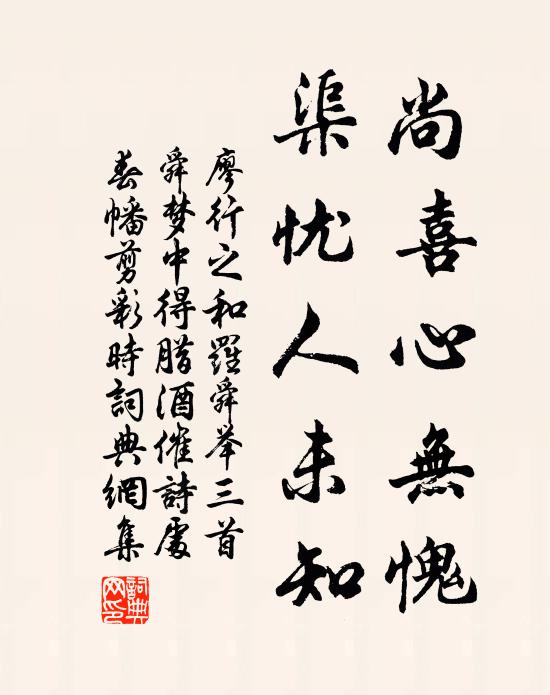 尚喜心無愧
渠忧人未知
廖行之和羅舜举三首
舜梦中得腊酒催詩處
春幡剪彩時詞典網集
詞典
网印